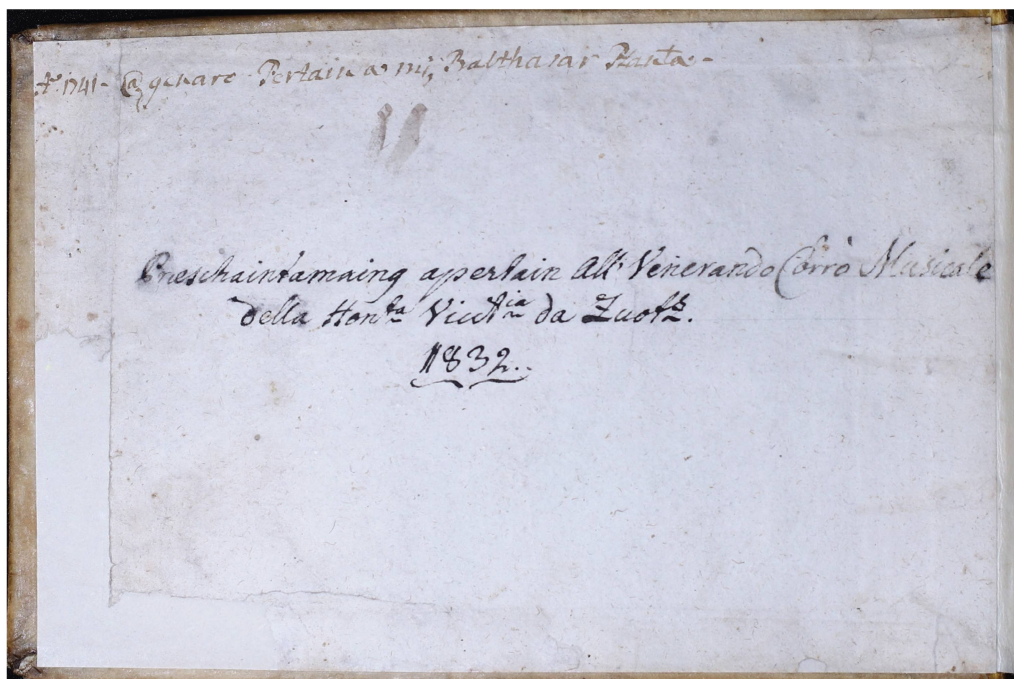 Aº. 1741 - @ genaro Pertain a mi, Balthasar Planta -
Preschaintamaing apertain All' Venerando Corro Musicale
della Honta Vicctia da Zuotz.
1832..